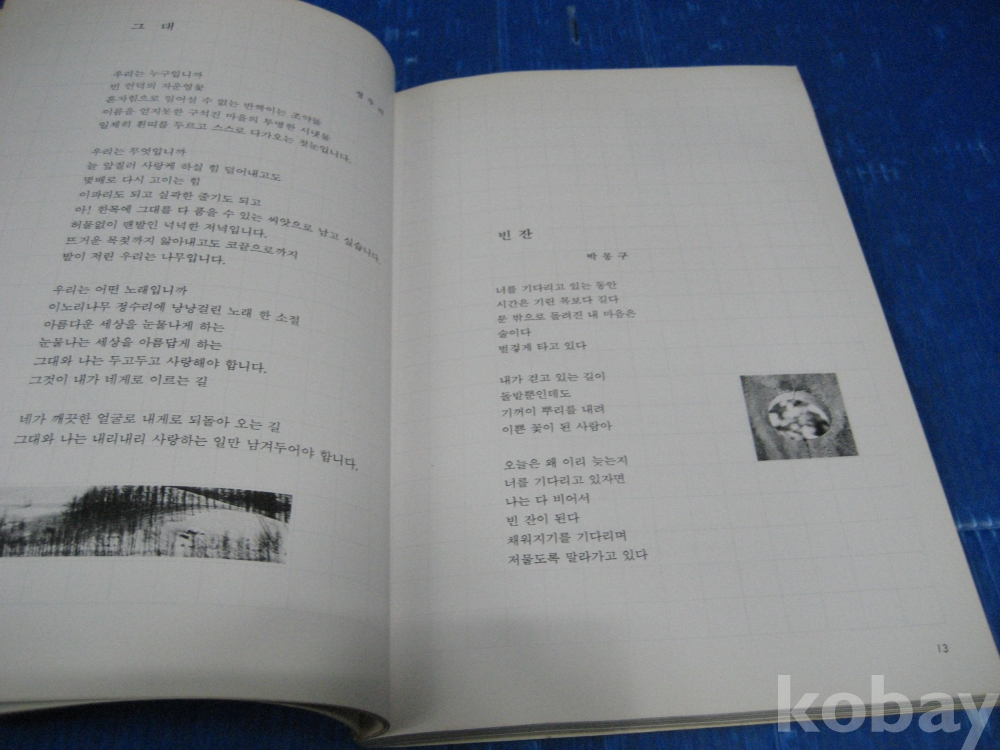 그 대
우리는 누구입니까
빈 언덕의 자운영꽃
혼자힘으로 일어설 수 없는 반짝이는 조약돌
이름을 얻지못한 구석진 마을의 투명한 시냇물
일제히 흰띠를 두르고 스스로 다가오는 첫눈입니다.
우리는 무엇입니까
늘 앞질러 사랑케 하실 힘 덜어내고도
몇배로 다시 고이는 힘
이파리도 되고 실팍한 줄기도 되고
아! 한목에 그대를 다 품을 수 있는 씨앗으로 남고 싶습니다
허물없이 맨발인 넉넉한 저녁입니다.
뜨거운 목젖까지 알아내고도 코끝으로까지
발이 저린 우리는 나무입니다.
우리는 어떤 노래입니까
이노리나무 정수리에 낭낭걸린 노래 한 소절
아름다운 세상을 눈물나게 하는
눈물나는 세상을 아름답게 하는
그대와 나는 두고두고 사랑해야 합니다.
그것이 내가 네게로 이르는 길
네가 깨끗한 얼굴로 내게로 되돌아 오는 길
그대와 나는 내리내리 사랑하는 일만 남겨두어야 합니다.
빈 잔
박몽구
너를 기다리고 있는 동안
시간은 기린 목보다 길다
문 밖으로 돌려진 내 마음은
숯이다
벌겋게 타고 있다
내가 걷고 있는 길이
돌밭뿐인데도
기꺼이 뿌리를 내려
이쁜 꽃이 된 사람아
오늘은 왜 이리 늦는지
너를 기다리고 있자면
나는 다 비어서
빈 잔이 된다
채워지기를 기다리며
저물도록 말라가고 있다
13
kobay